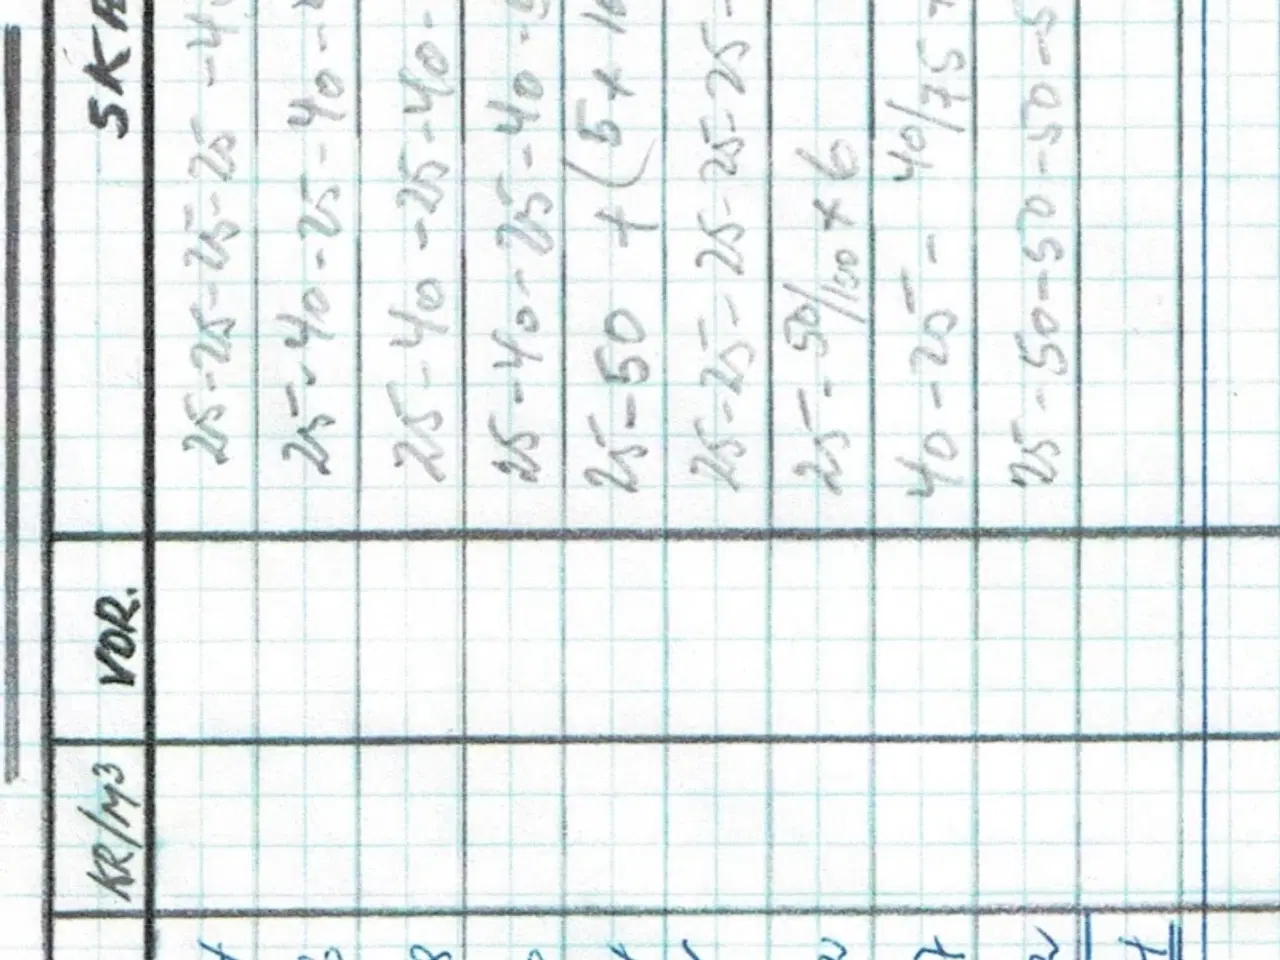 KR/M3 VDR. SKA
25-25-25-25-4
25-40-25-40-
25-40-25-40-
25-40-25-40-
25-50 + (5+
25-25-25-25-25-
25-50/150 + 6
40-25- 40/75 +
25-50-50-50-5